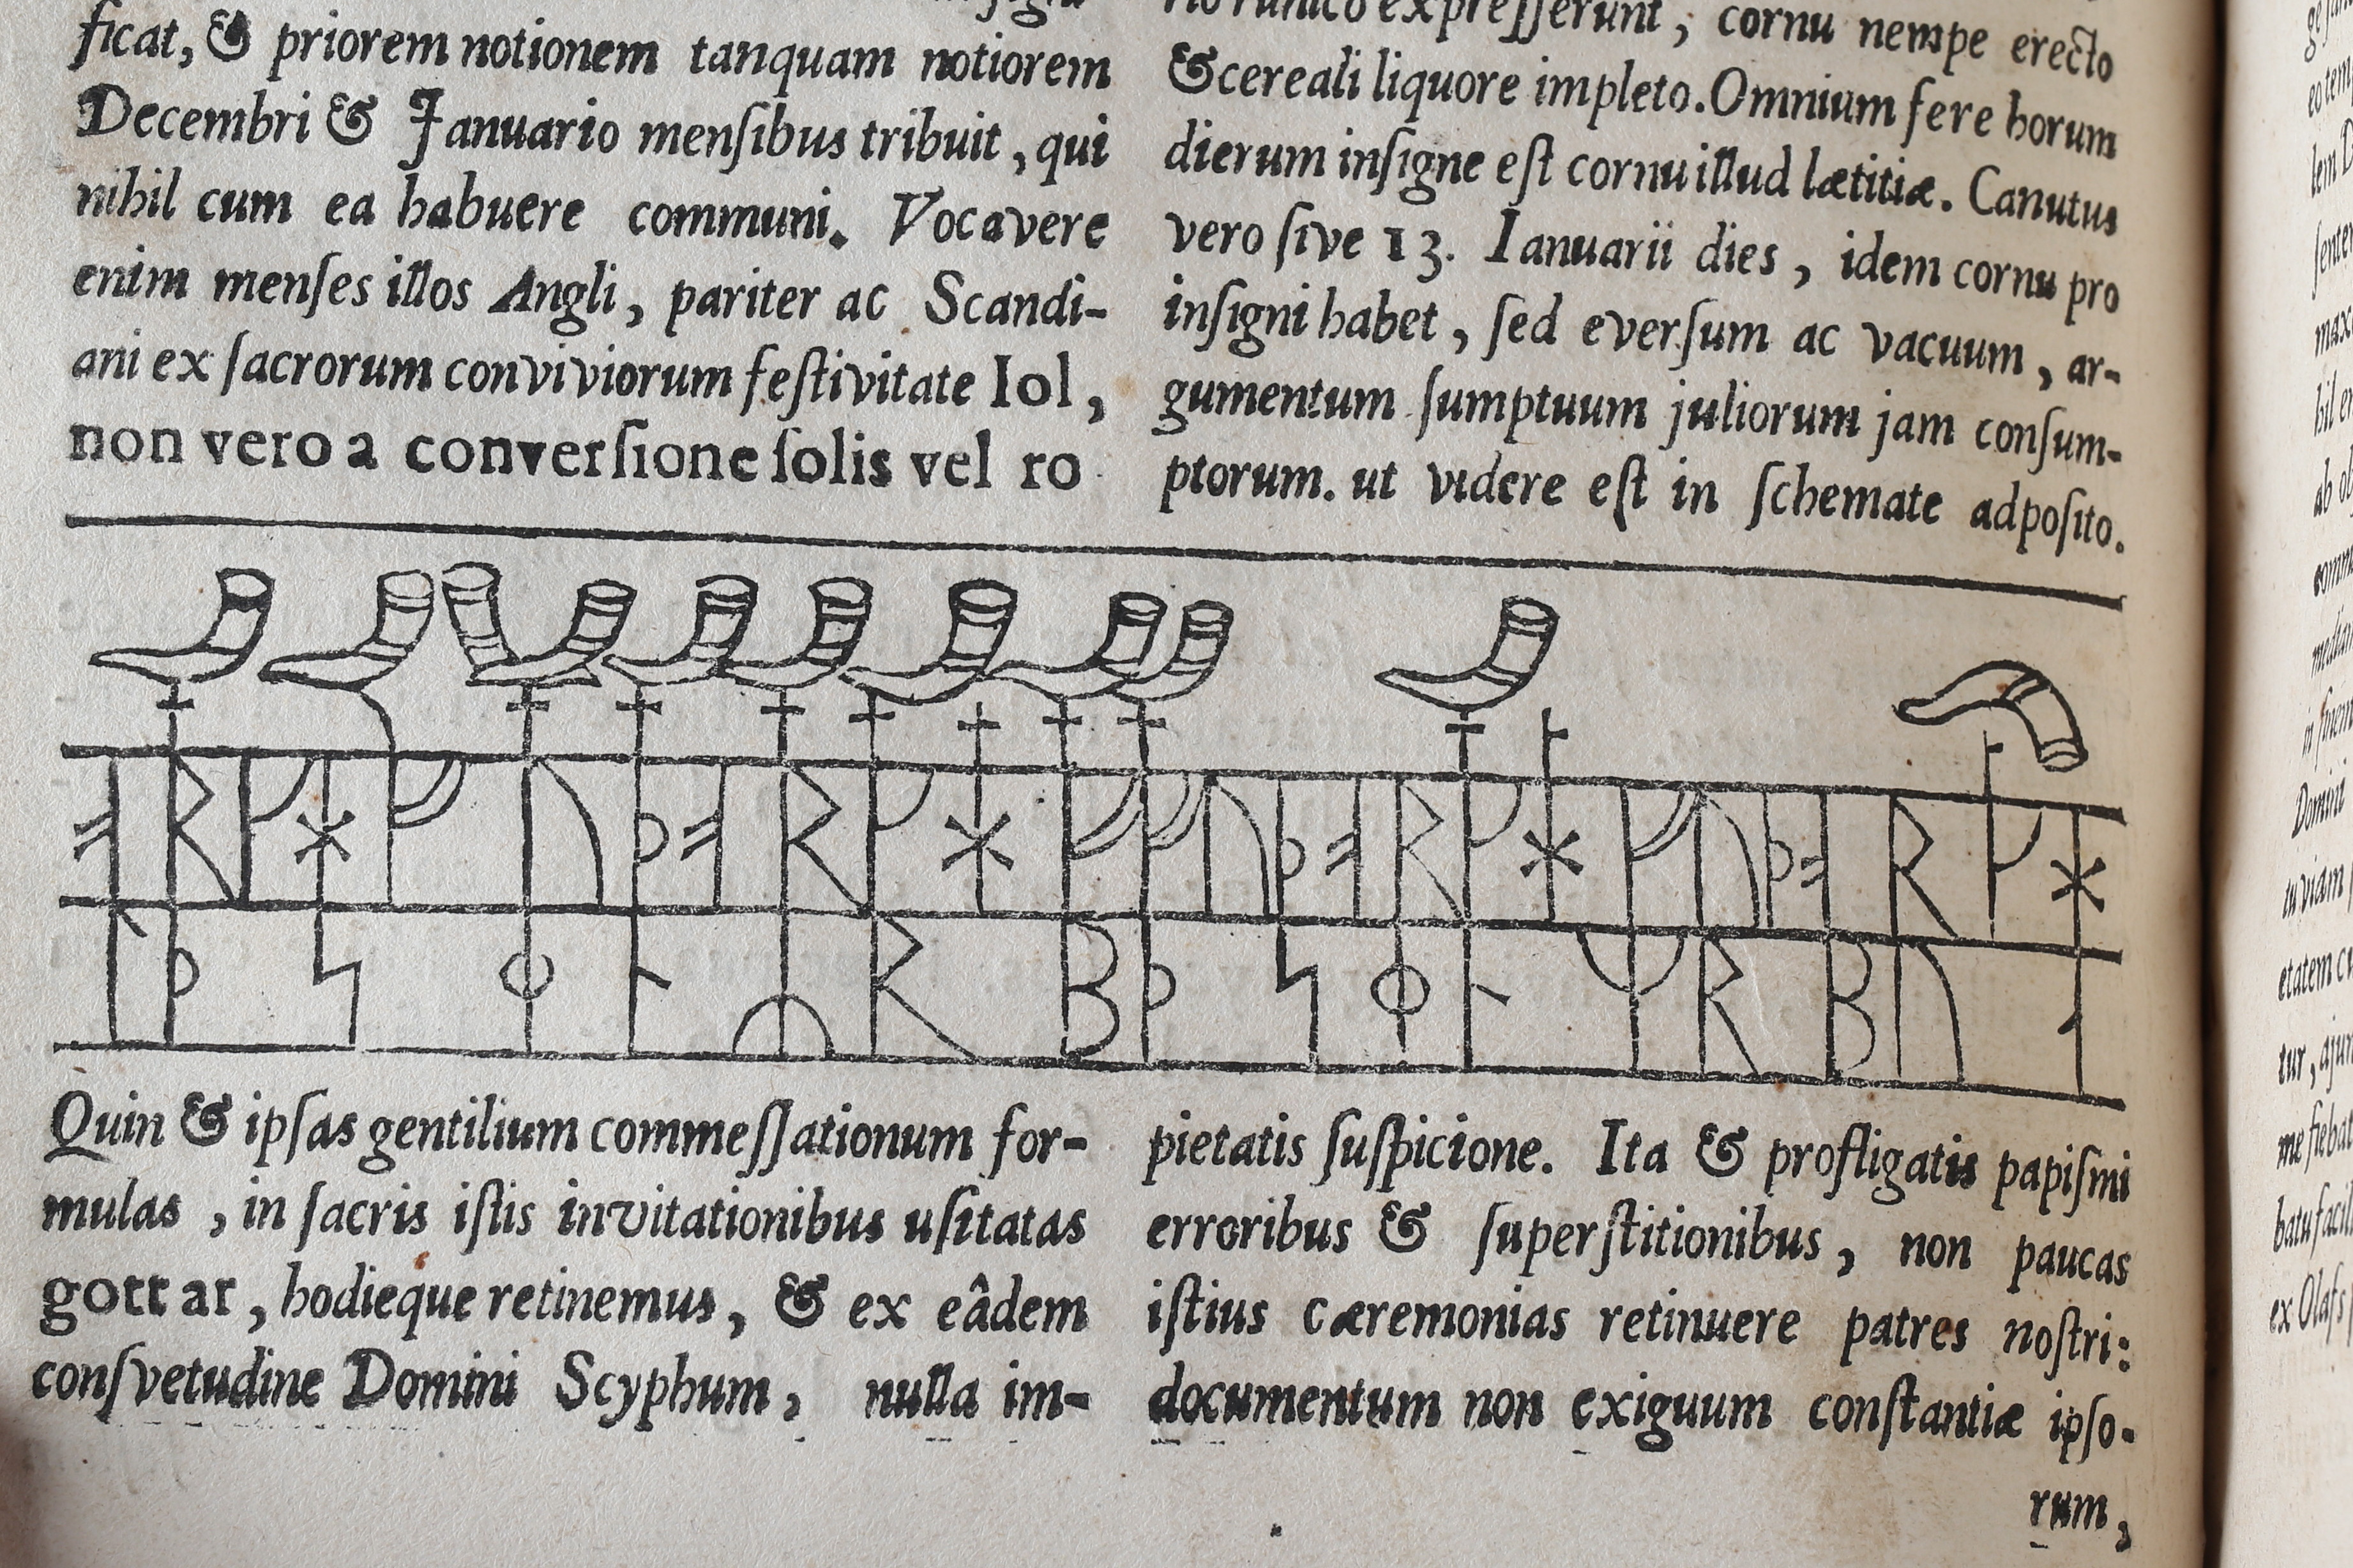 ficat, & priorem notionem tanquam notiorem
Decembri & Januario menſibus tribuit, qui
nihil cum ea habuere communi. Vocavere
enim menſes illos Angli, pariter ac Scandi-
ani ex ſacrorum conviviorum feſtivitate Iol,
non vero a converſione ſolis vel ro
runico expreſſerunt, cornu nempe erecto
& cereali liquore impleto. Omnium fere horum
dierum inſigne eſt cornu illud lætitiæ. Canutus
vero ſive 13. Ianuarii dies, idem cornu pro
inſigni habet, ſed everſum ac vacuum, ar-
gumentum ſumptuum juliorum jam conſum-
ptorum. ut videre eſt in ſchemate adpoſito.
ᚮᚱᚴᚼᚠᚢᚦᚮᚱᚴᚼᚠᚠᚢᚦᚮᚱᚴᚼᚠᚢᚦᚮᚱᚴᚼ
Quin & ipſas gentilium commeſſationum for-
mulas, in ſacris iſtis invitationibus uſitatas
gott ar, hodieque retinemus, & ex eâdem
conſvetudine Domini Scyphum, nulla im-
pietatis ſuſpicione. Ita & profligatis papiſmi
erroribus & ſuperſtitionibus, non paucas
iſtius cæremonias retinuere patres noſtri:
documentum non exiguum conſtantiæ ipſo-
rum,